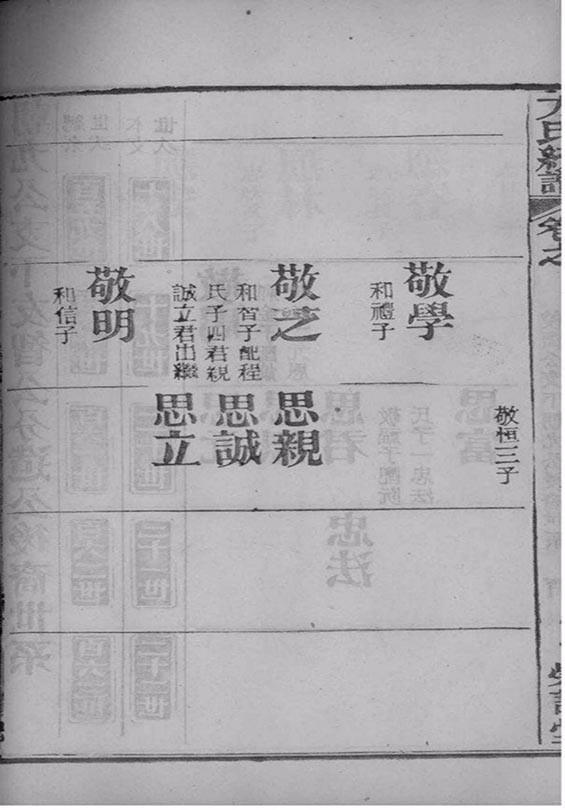 氏統譜
卷之
敬學
和禮子
敬芝
和智子配程
氏子四君親
誠立君出繼
敬明
和信子
敬恒三子
思親
思誠
思立